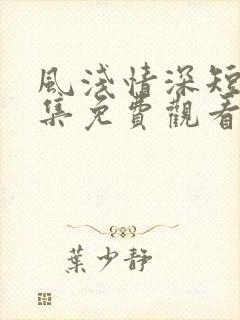 風淺情深短
集免費觀看
葉少靜